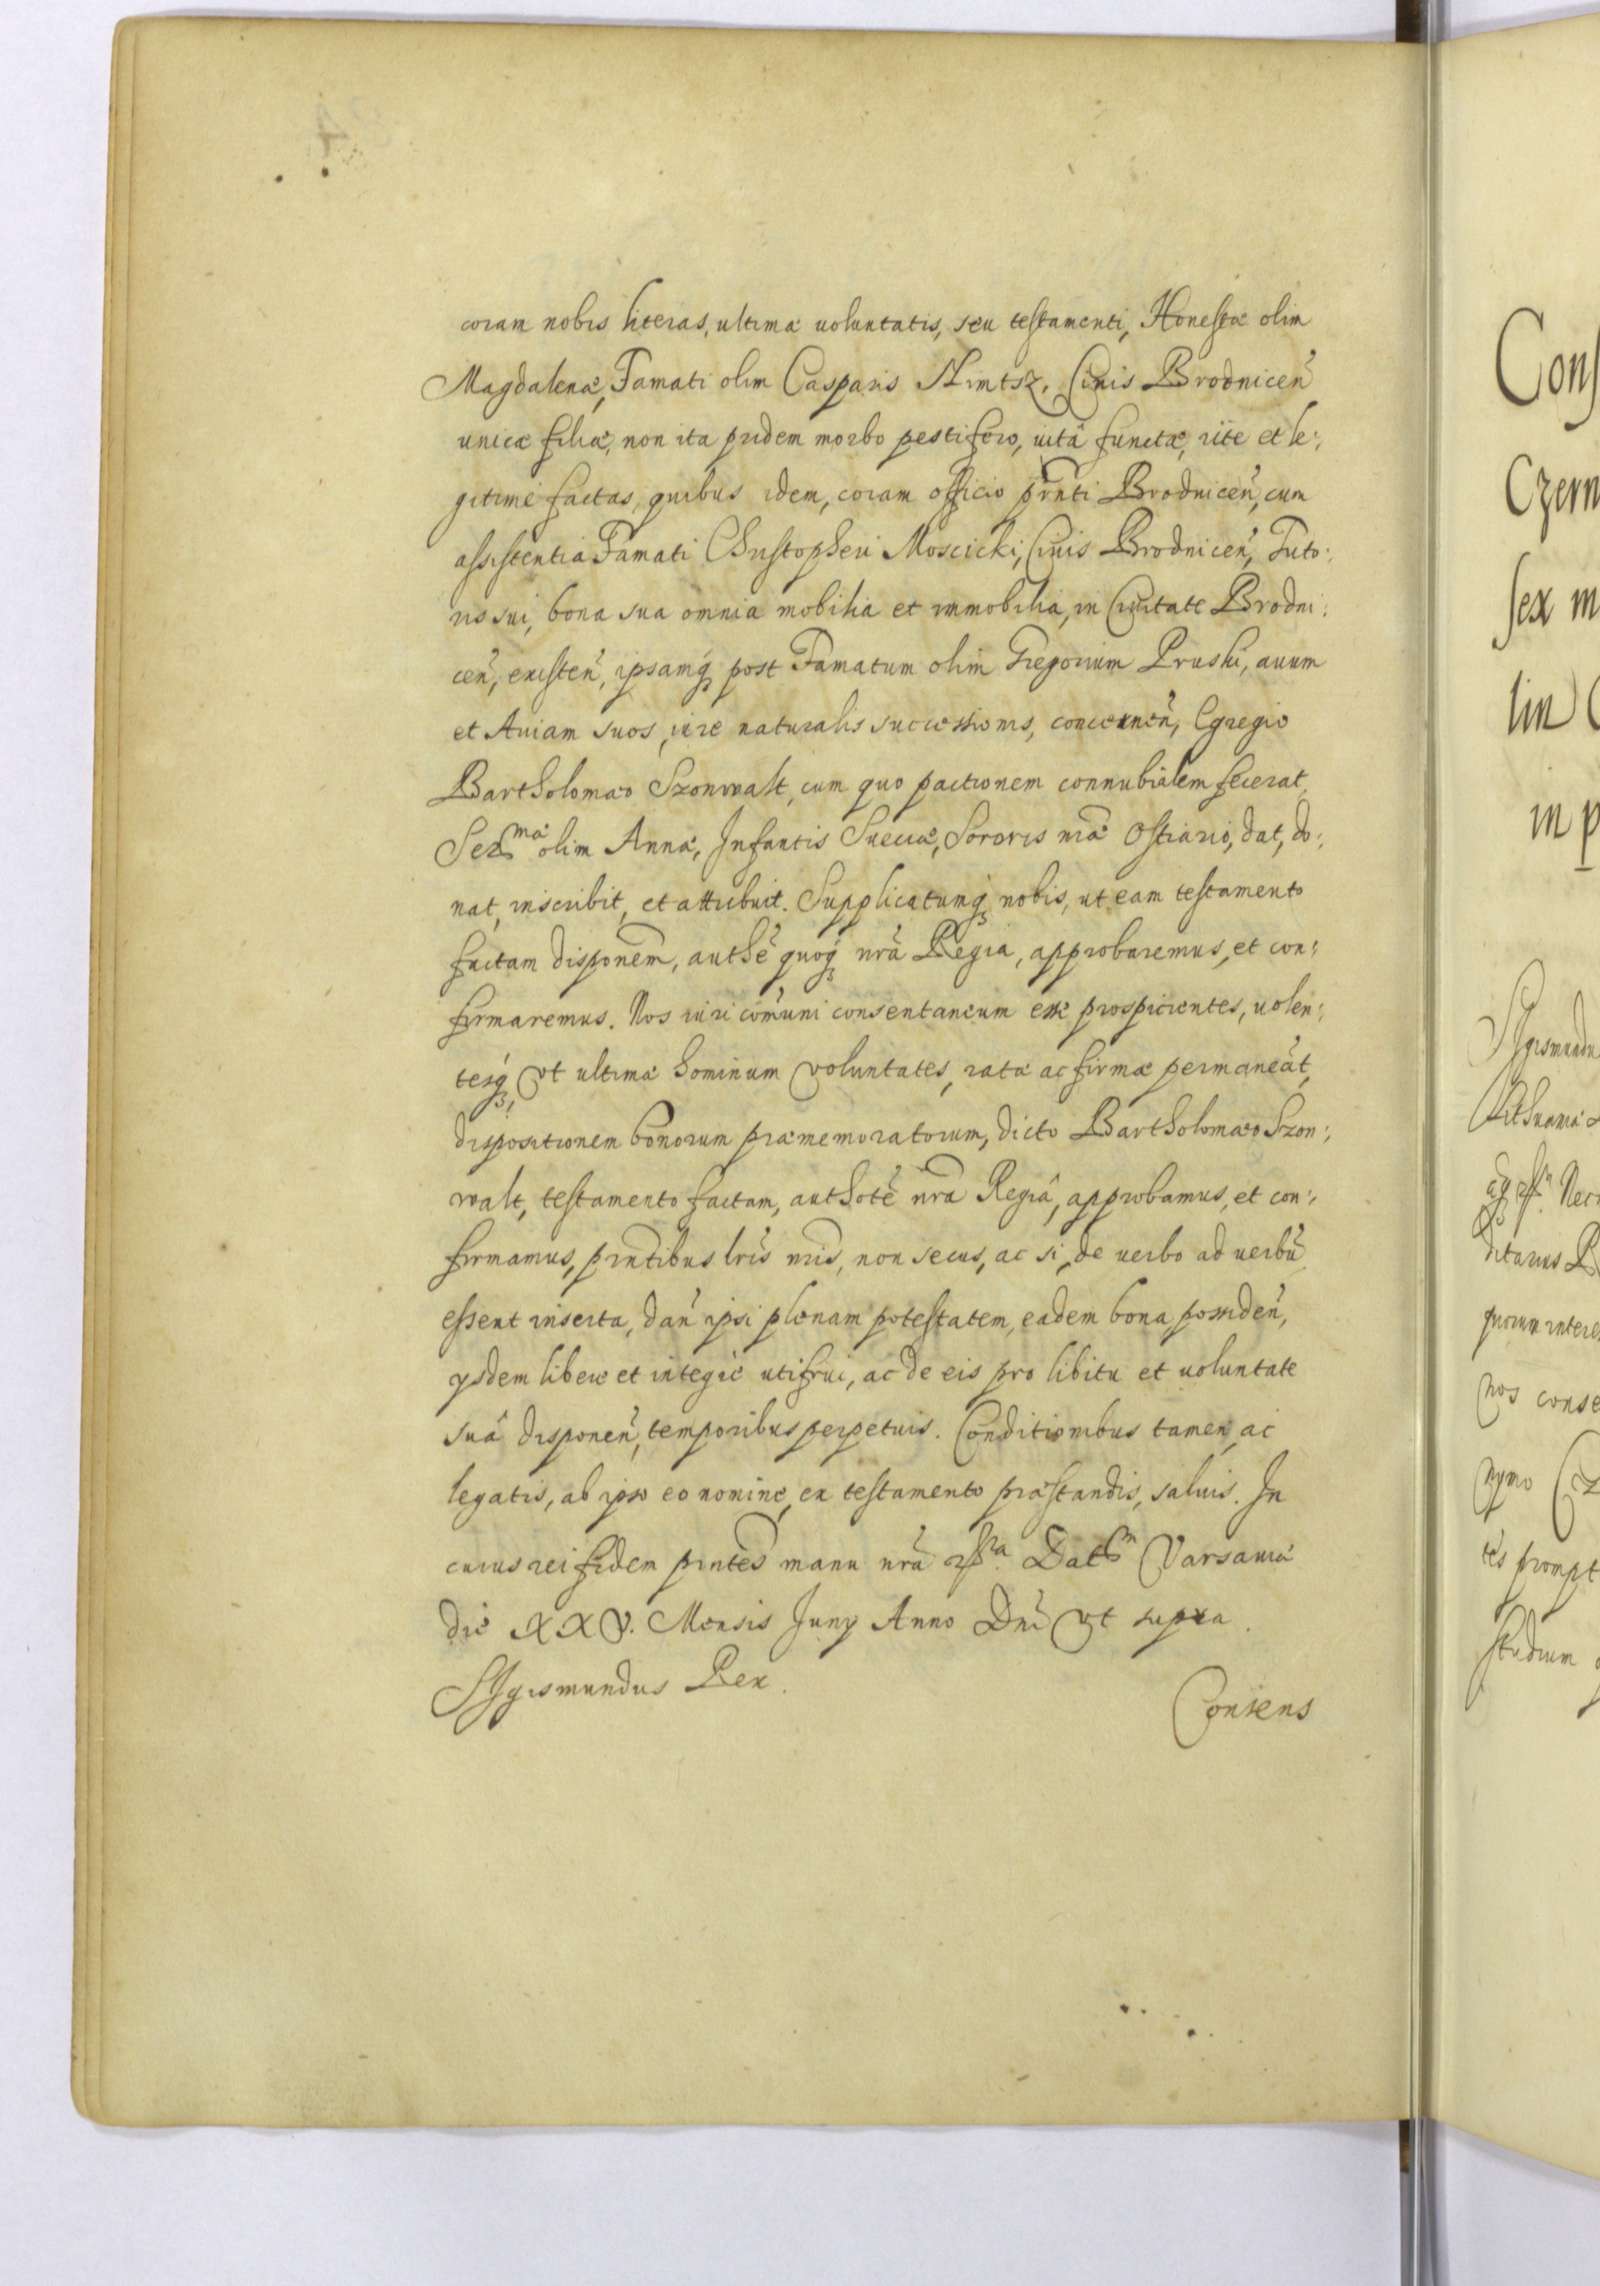 coram nobis literas, ultimæ uoluntatis, seu testamenti, Honestæ olim
Magdalenæ, Famati olim Casparis Nimtsz, Ciuis Brodniceñ
unicæ filiæ, non ita pridem morbo pestifero, uitâ functæ, rite et le:
gitimè factas, quibus idem, coram officio prñti Brodniceñ, cum
assistentia Famati Christopheri Moscicki, Ciuis Brodniceñ, Tuto:
ris sui, bona sua omnia mobilia et immobilia, in Ciuitate Brodni:
ceñ, existeñ, ipsamq₃ post Famatum olim Gregorium Pruski, auum
et Auiam suos, iure naturalis successionis, concerneñ, Egregio
Bartholomæo Szonwalt, cum quo pactionem connubialem fecerat,
Serᵐᵃᵉ olim Annæ, Infantis Sueciæ, Sororis nræ Ostiario, dat, do:
nat, inscribit, et attribuit. Supplicatumq₃ nobis, ut eam testamento
factam disponem̃, authẽ quoq₃ nrã Regia, approbaremus, et con:
firmaremus. Nos iuri com̃uni consentaneum esse prospicientes, uolen:
tesq₃, vt ultimæ hominum voluntates, ratæ ac firmæ permaneãt,
dispositionem bonorum præmemoratorum, dicto Bartholomæo Szon:
walt, testamento factam, authotẽ nrã Regiâ, approbamus, et con:
firmamus, prñtibus lrĩs nrĩs, non secus, ac si, de uerbo ad uerbũ
essent inserta, dañ ipsi plenam potestatem, eadem bona possideñ,
ysdem liberè et integrè utifrui, ac de eis pro libitu et uoluntate
suâ disponeñ, temporibus perpetuis. Conditionibus tamen, ac
legatis, ab ipso eo nomine, ex testamento præstandis, saluis. In
cuius rei fidem prñtes manu nrã Datᵐ Varsauiæ
die XXV. Mensis Juny Anno Dnĩ vt supra.
Sigismundus Rex.
Consens
Cons
Czern
sex m
lin
in p
Sigismundu
Lithuaniæ
Nec
ditarius R
quorum intere
nos conse
nymo
tes prompt
studium